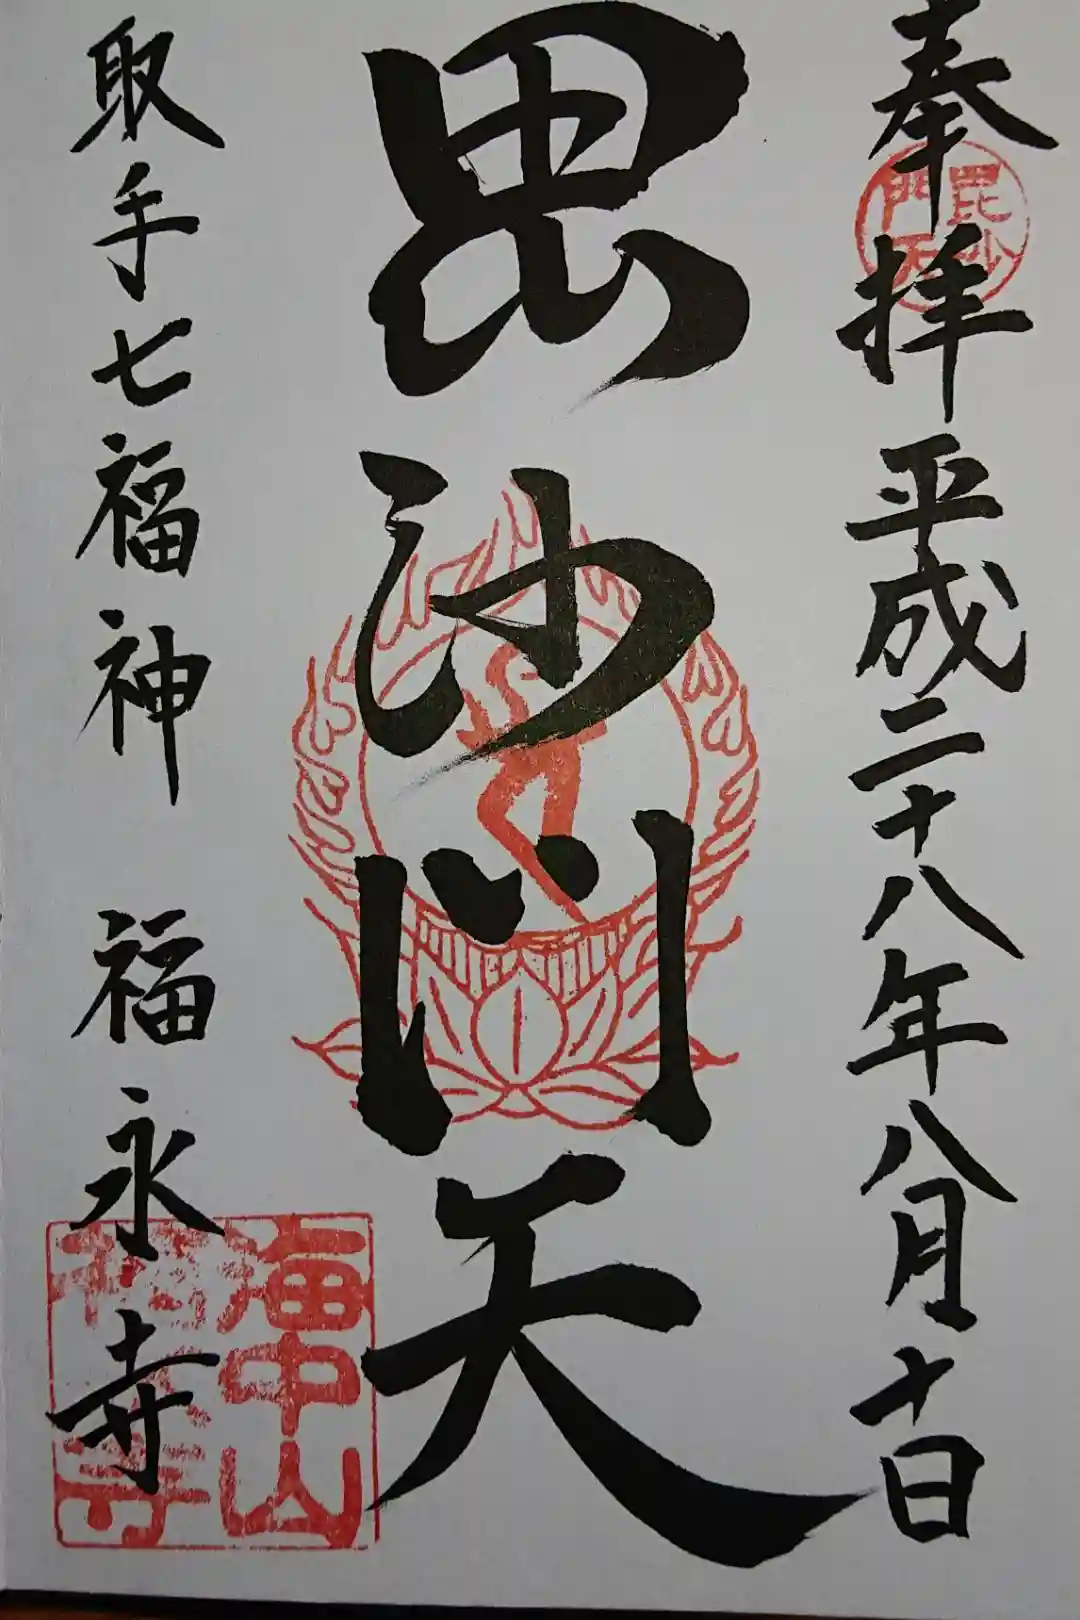 奉拝 平成二十八年八月十日
毘沙門天
毘沙門天
取手七福神 福永寺
海中山福永寺